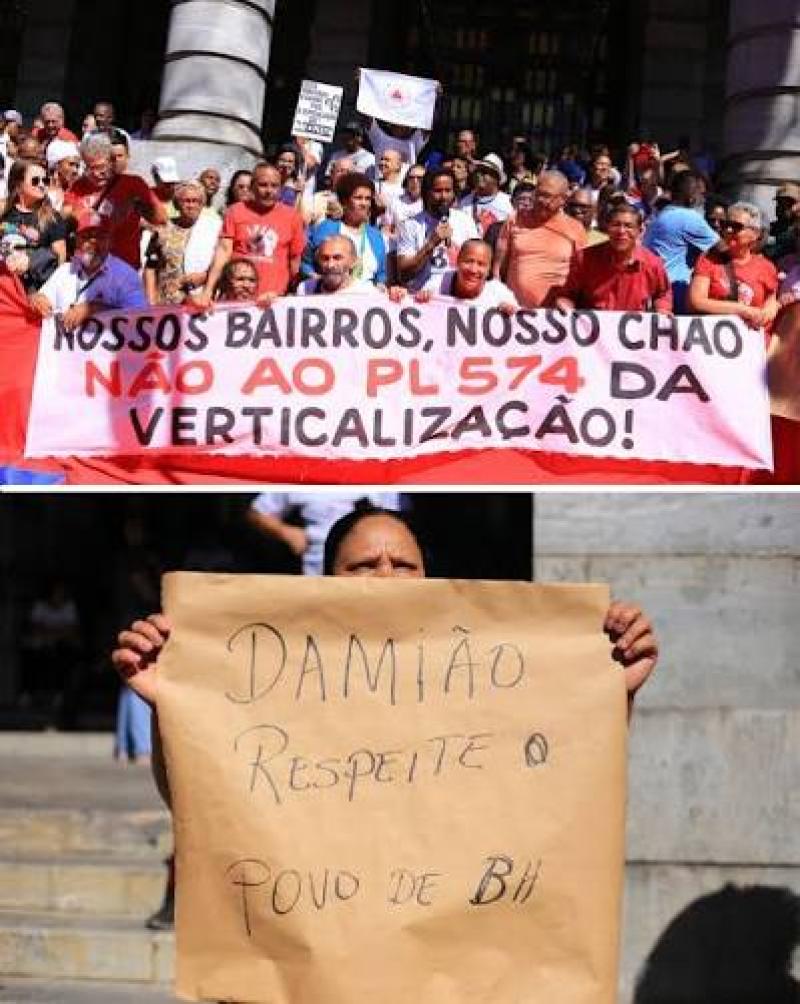 NOSSOS BAIRROS, NOSSO CHÃO
NÃO AO PL 574 DA
VERTICALIZAÇÃO!
DAMIÃO
RESPEITE O
POVO DE BH